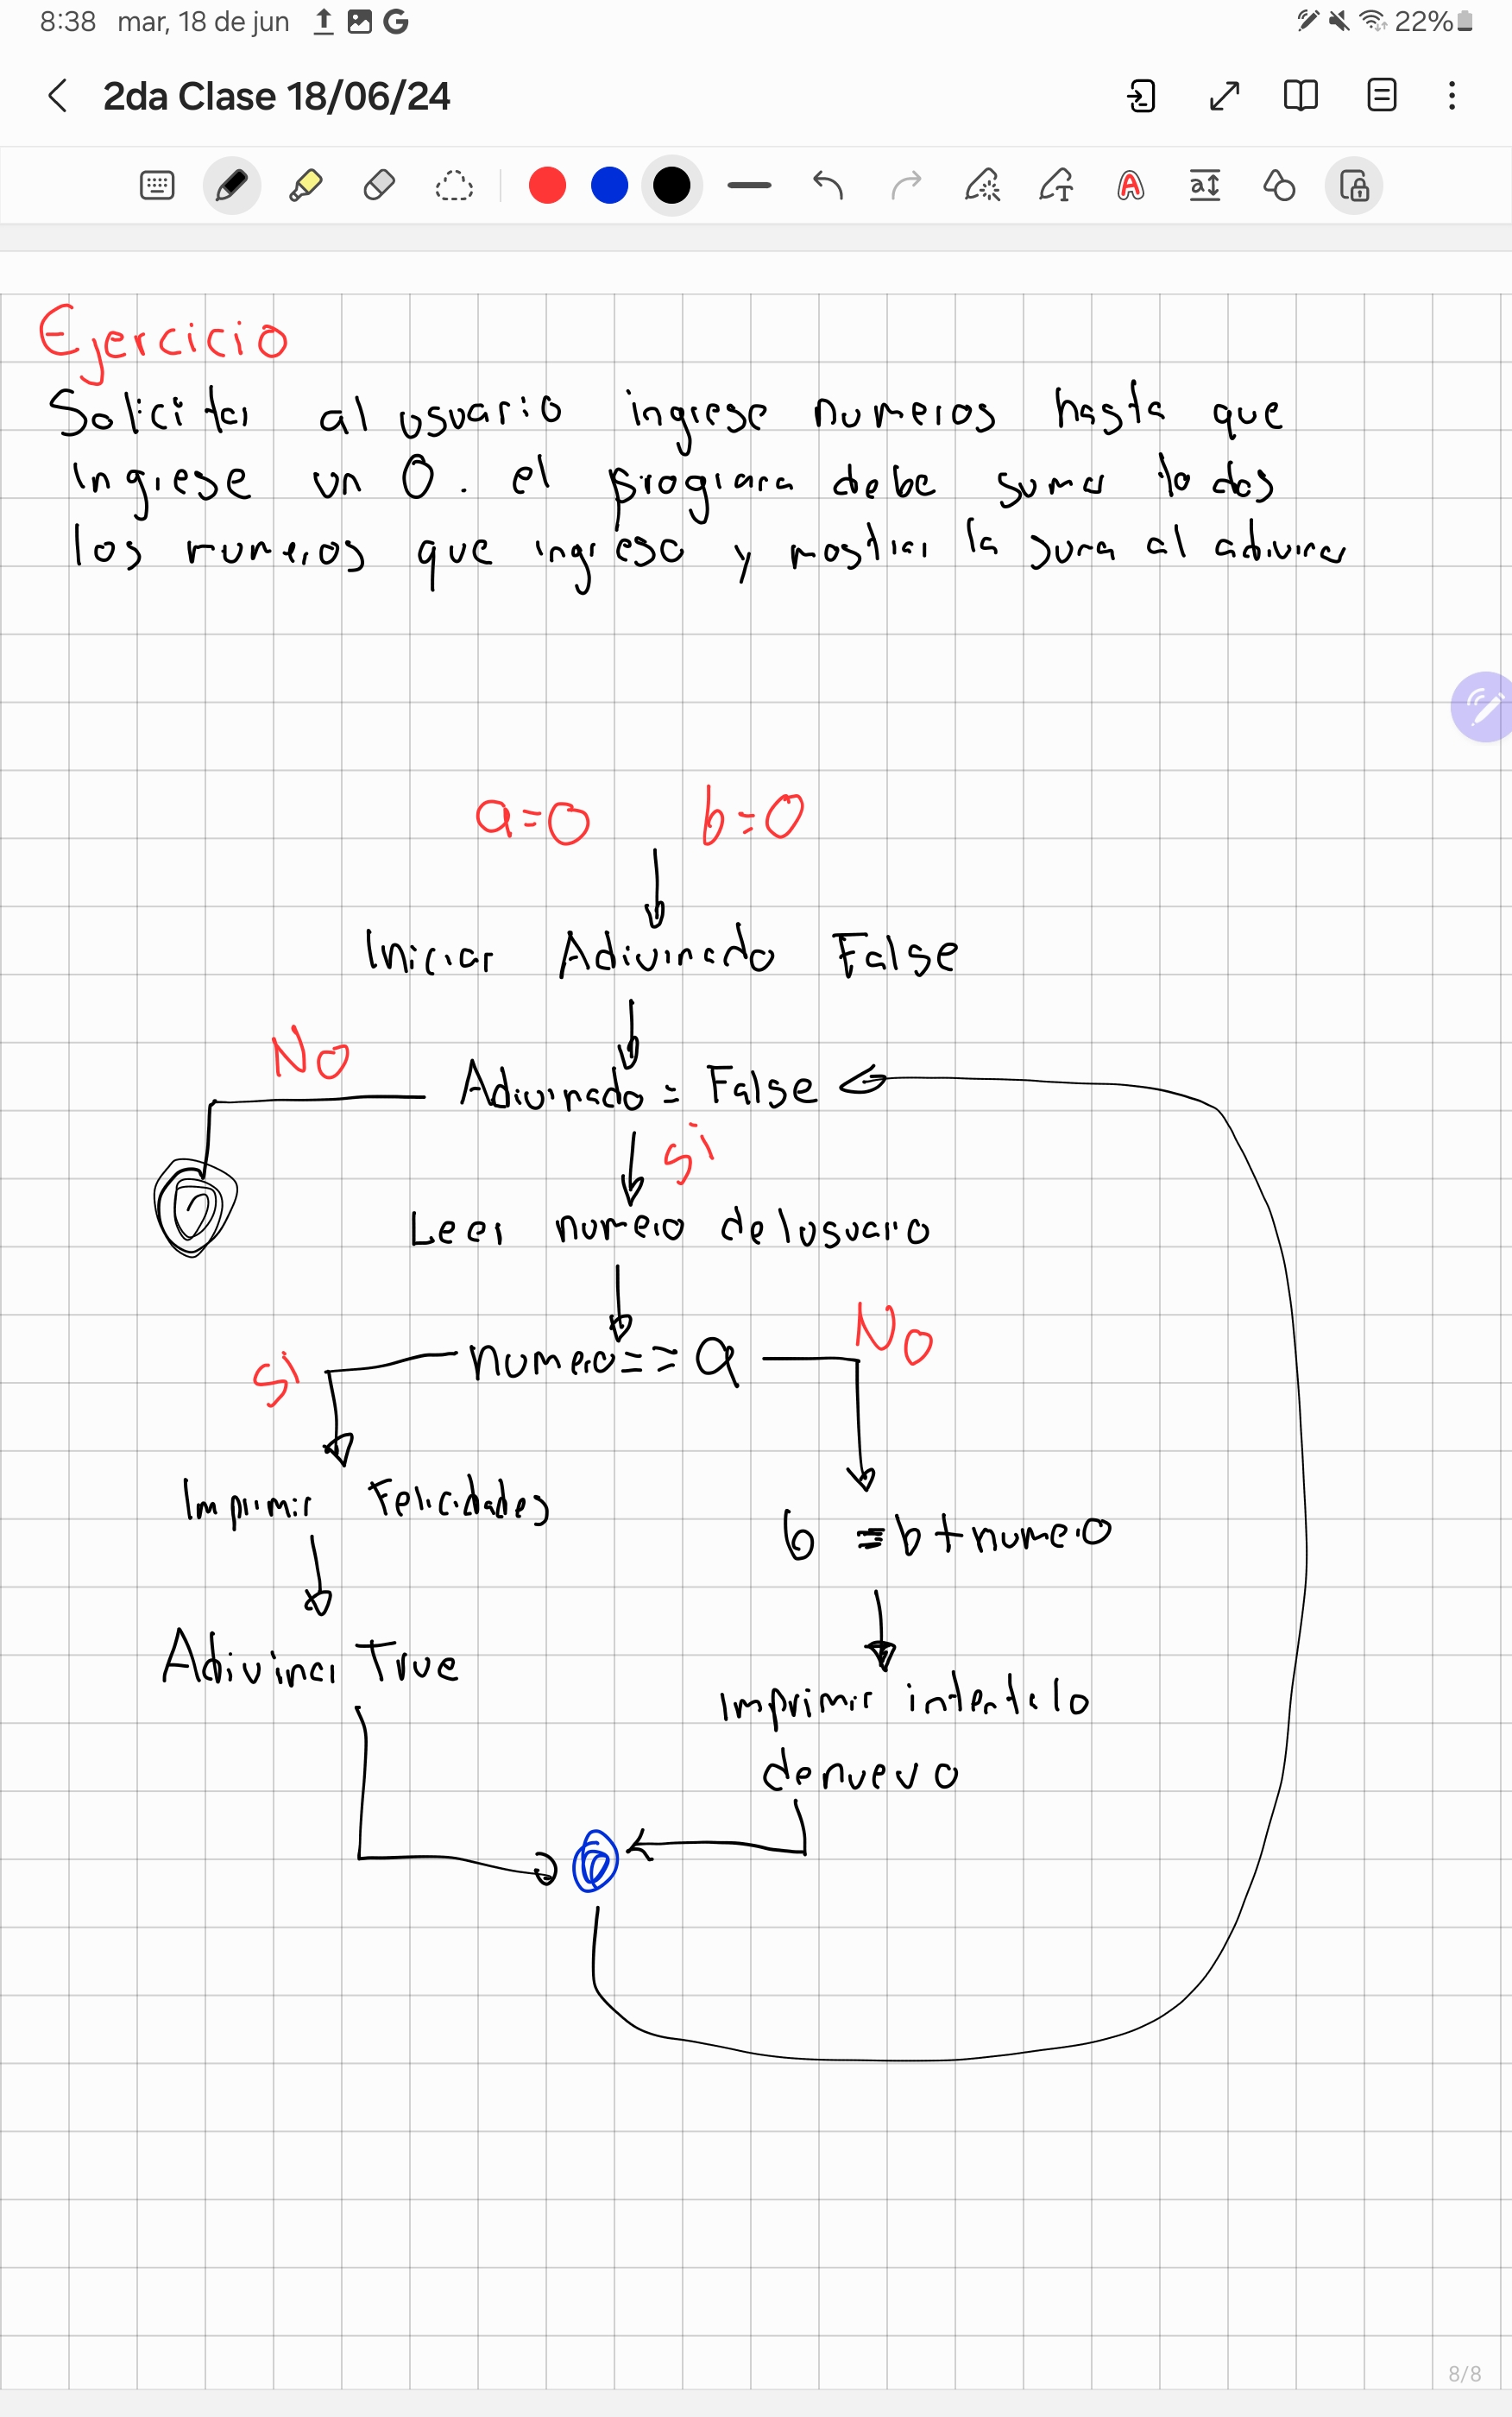 8:38 mar, 18 de jun G 22%
2da Clase 18/06/24
Ejercicio
Solicitar al usuario ingrese numeros hasta que
ingrese un 0. el prograra debe sumar todos
los numeros que ingreso y mostrar la suma al adivinar
a=0 b=0
Iniciar Adivinado False
No
Adivinado = False
si
Leer numero del usuario
No
si numero == a
Imprimir Felicidades
b = b + numero
Adivinar True
Imprimir intentalo
denuevo
8/8